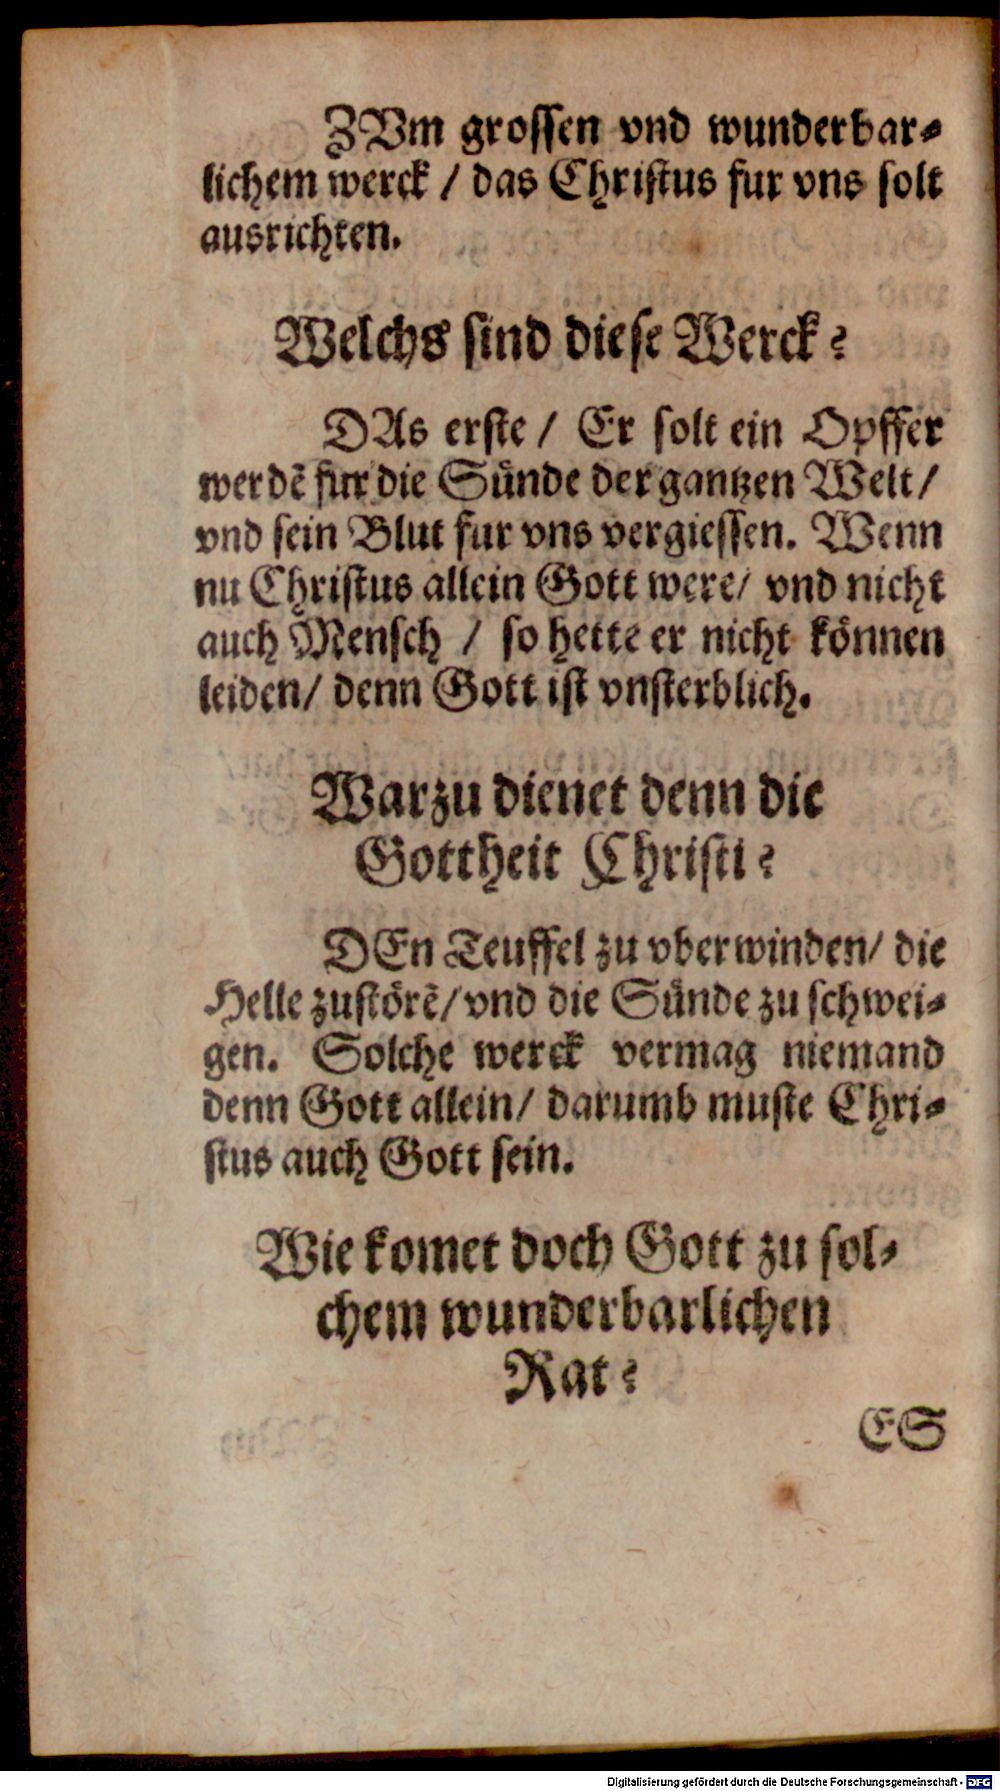 ZVm grossen vnd wunderbar⸗
lichem werck / das Christus fur vns solt
ausrichten.
Welchs sind diese Werck?
DAs erste / Er solt ein Opffer
werdẽ fur die Sünde der gantzen Welt /
vnd sein Blut fur vns vergiessen. Wenn
nu Christus allein Gott were / vnd nicht
auch Mensch / so hette er nicht können
leiden / denn Gott ist vnsterblich.
Warzu dienet denn die
Gottheit Christi?
DEn Teuffel zu vberwinden / die
Helle zustörẽ / vnd die Sünde zu schwei⸗
gen. Solche werck vermag niemand
denn Gott allein / darumb muste Chri⸗
stus auch Gott sein.
Wie komet doch Gott zu sol⸗
chem wunderbarlichen
Rat?
ES
Digitalisierung gefördert durch die Deutsche Forschungsgemeinschaft - DFG